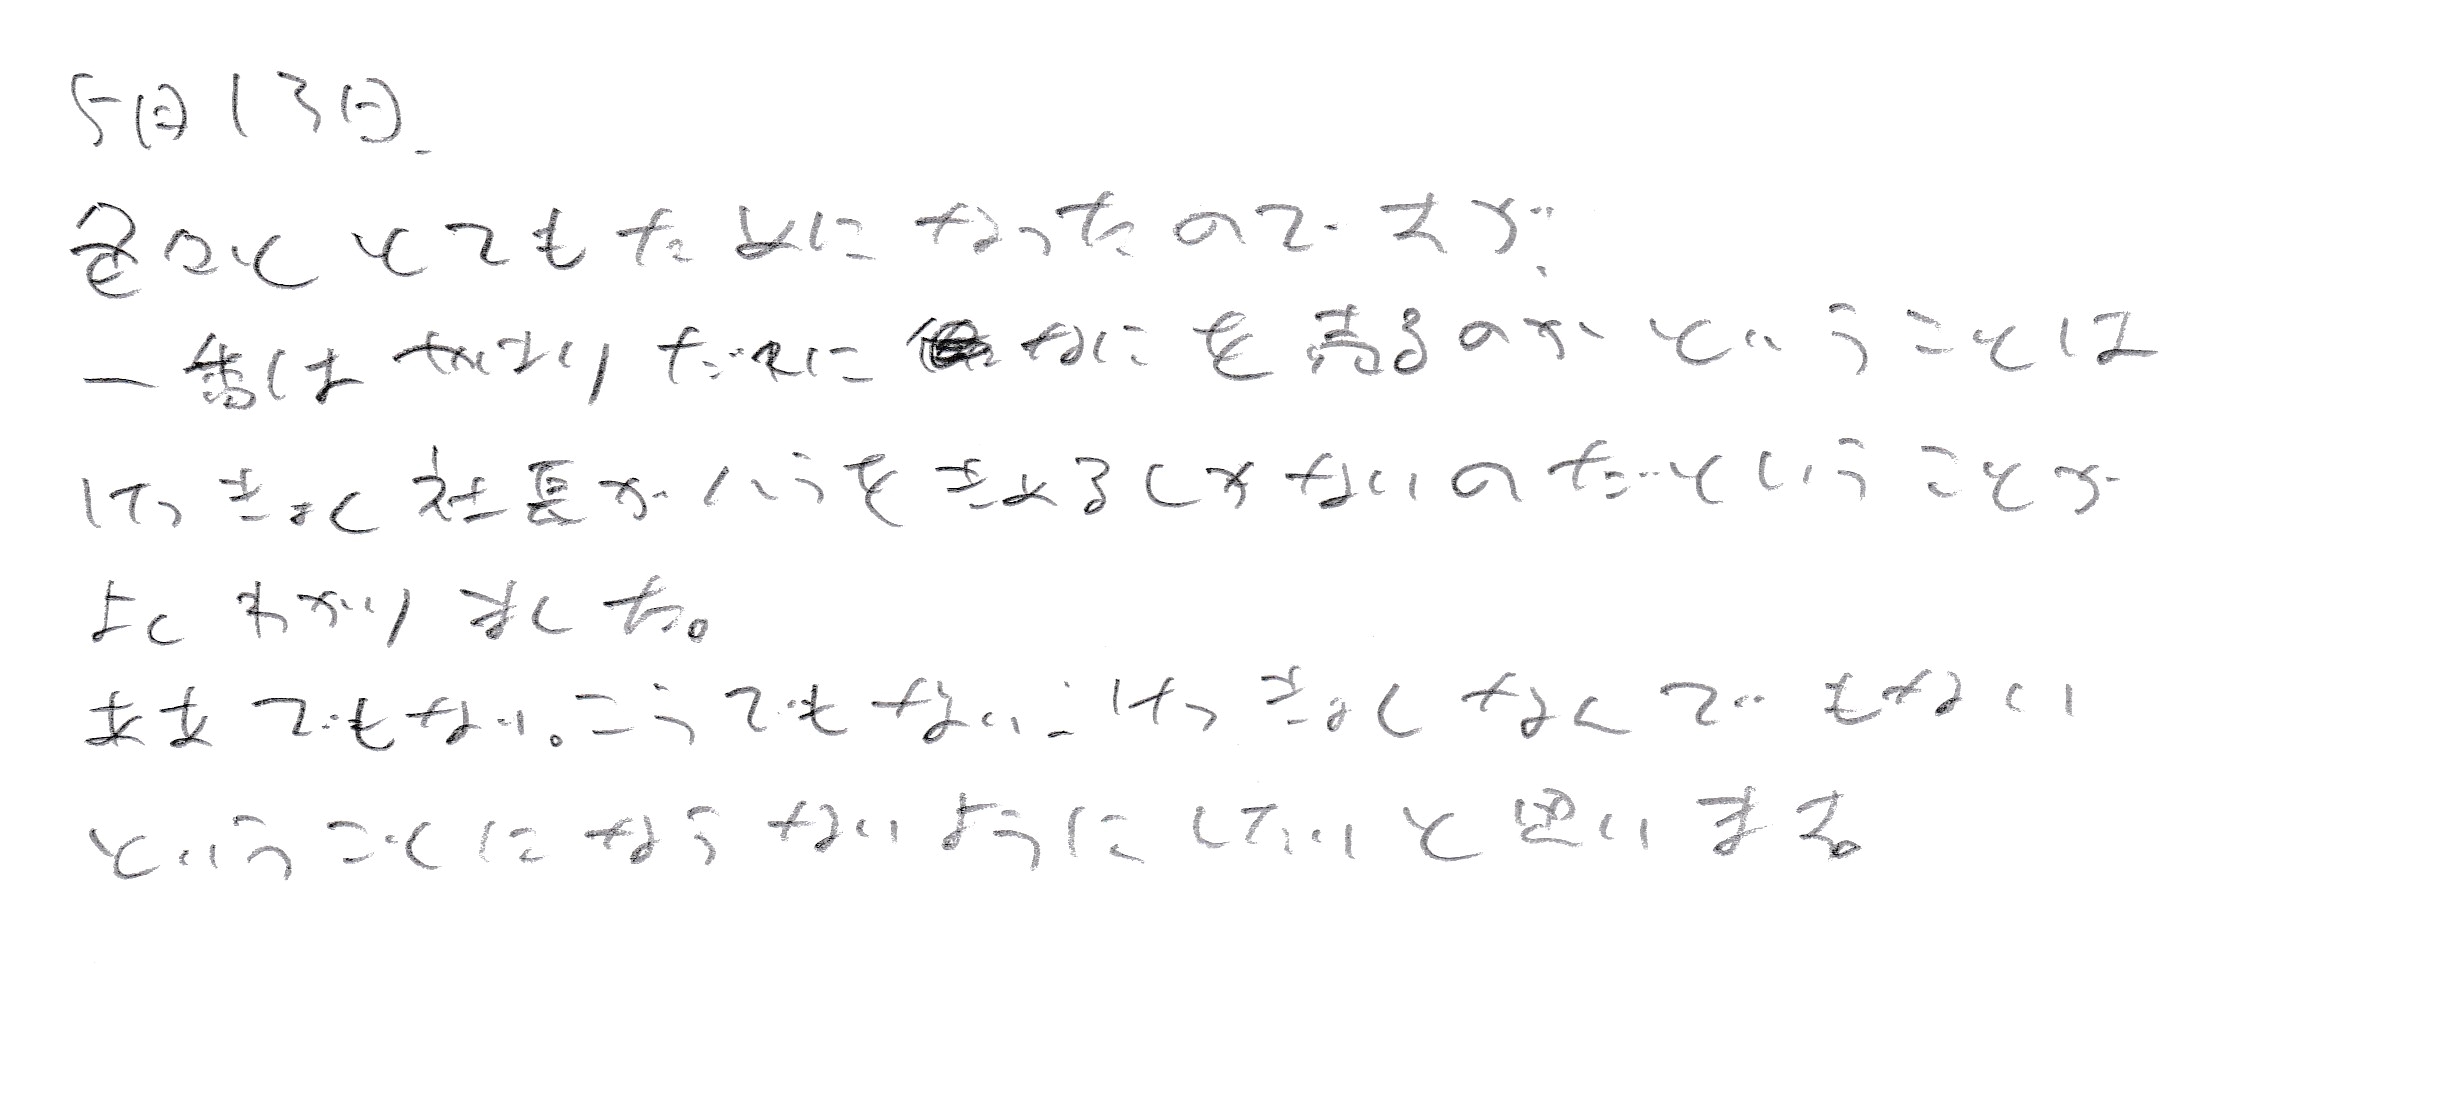 5月13日.
とてもためになったのですが、
一番はやはりだれになにを売るのかということは
けっきょく社長がハラをきめるしかないのだということが
よくわかりました。
ああでもない。こうでもない、けっきょくなんでもない
ということにならないようにしたいと思います。